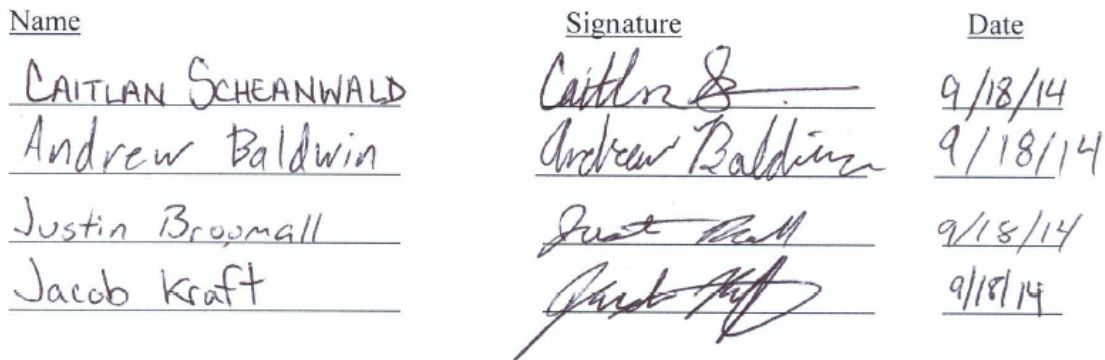 Name Signature Date
CAITLAN SCHEANWALD Caitlan S 9/18/14
Andrew Baldwin Andrew Baldwin 9/18/14
Justin Broomall Just 9/18/14
Jacob Kraft 9/18/14